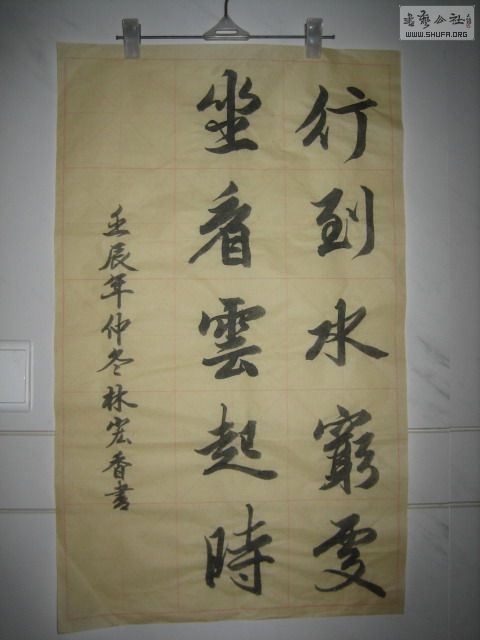 行到水窮處
坐看雲起時
壬辰年仲冬林宏香書
書藝公社
WWW.SHUFA.ORG